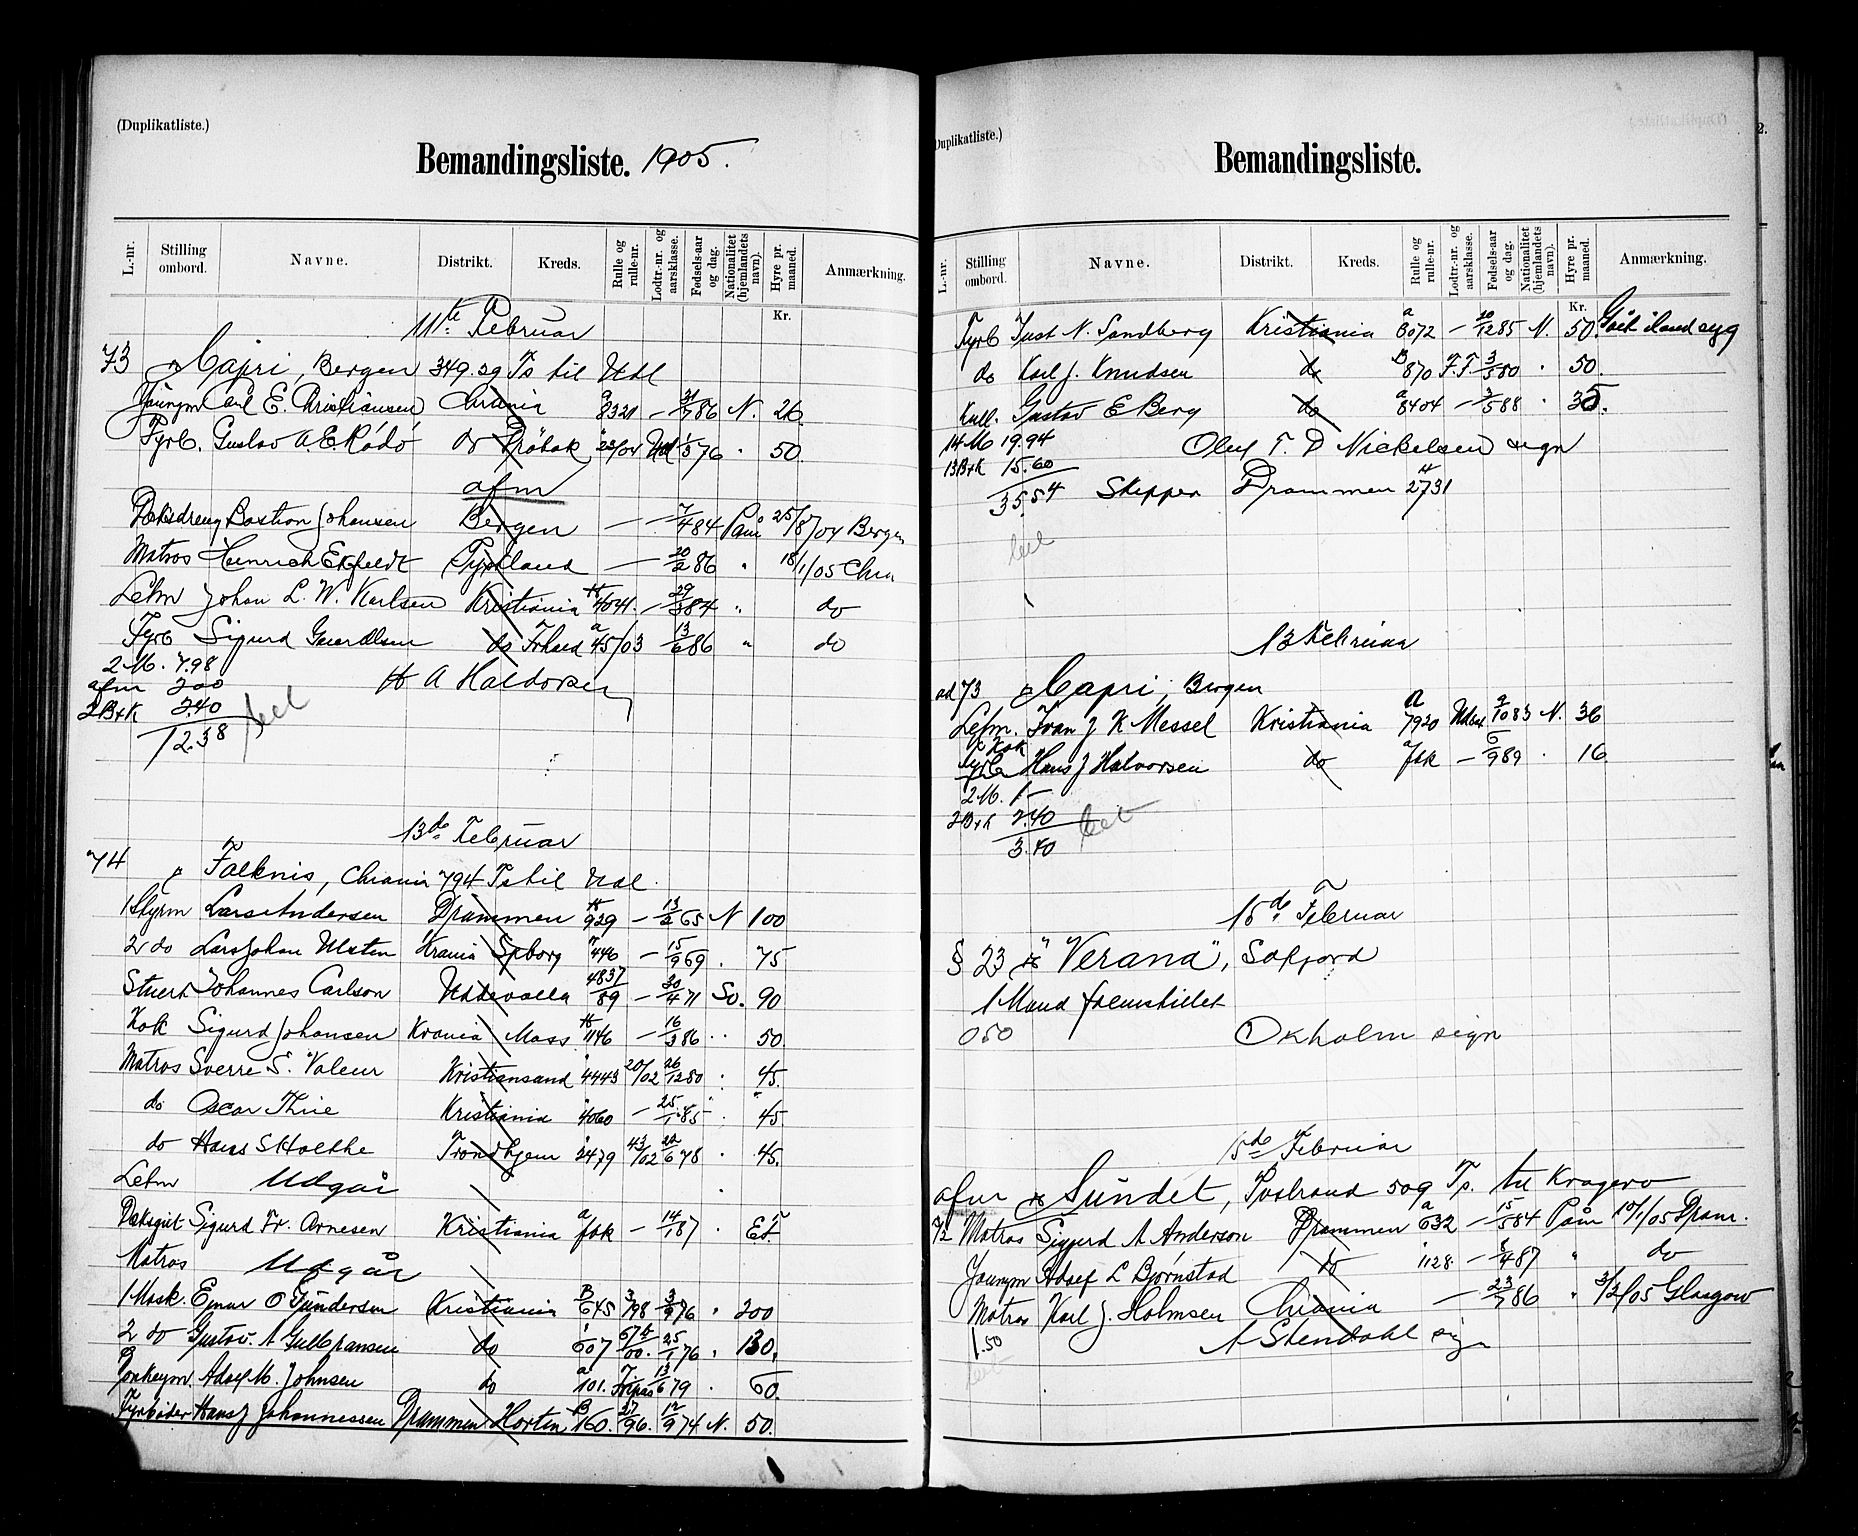 (Duplikatliste.)
Bemandingsliste. 1905.
L.-nr. Stilling ombord. Navne. Distrikt. Kreds. Rulle og rulle-nr. Lodtr.-nr. og aarsklasse. Fødsels-aar og dag. Nationalitet (hjemlandets navn). Hyre pr. maaned. Anmærkning.
Kr.
11te Februar
73 Capri, Bergen 349.29 Ts til Udl
Jungm Carl E. Christiansen Chrania 8321 — 31/7 86 N. 26
Fyrb. Gustav A. E. Rödö do Dröbak 28/04 Udl 1/5 76 " 50
afm
Dæksdreng Bastian Johansen Bergen — 7/4 84 Paam 25/8/04 Bergen
Matros Heinrich Ekfeldt Tyskland — 20/2 86 " 18/1/05 Chra
Letm Johan L. W. Karlsen Kristiania 4041 — 29/3 84 " do
Fyrb Sigurd do 45/03 13/6 86 " do
2 M. 7.98
afm 2.00
2 B+K 2.40
12.38
H A Haldorsen
13de Februar
74 Falknis, Chrania 794 Ts til Udl.
1 Styrm Lars Andersen Drammen 929 — 13/2 65 N 100
2 do Lars Johan Ulsten Krania Spborg 446 — 15/9 69 . 75
Stuert Johannes Carlson Uddevalla 4837/89 — 30/4 71 Sv. 90
Kok Sigurd Johansen Krania Moss 1146 — 16/3 86 " 50
Matros Sverre S. Valeur Kristiansand 4443 20/02 26/12 80 . 45.
do Oscar Thrie Kristiania 4060 — 25/1 85 . 45
do Hans S Holthe Trondhjem 2479 43/02 22/6 78 . 45.
Letm Udgår
Dæksgut Sigurd Fr. Arnesen Kristiania fbk — 14/1 87 . E.F.
Matros Udgår
1 Mask. Ejnar O Gundersen Kristiania 645 3/98 3/9 76 " 200
2 do Gustav A Gulbransen do 607 676/00. 25/1 76 " 130.
Donkeym. Adolf M. Johnsen do 101. 13/6 79 . 60.
Fyrbøder Hans J Johannessen Drammen Horten 160. 27/96. 12/9 74 N. 50.
(Duplikatliste.)
Bemandingsliste.
L.-nr. Stilling ombord. Navne. Distrikt. Kreds. Rulle og rulle-nr. Lodtr.-nr. og aarsklasse. Fødsels-aar og dag. Nationalitet (hjemlandets navn). Hyre pr. maaned. Anmærkning.
Kr.
Fyrb Just N. Sandberg Kristiania a 8072 — 20/12 85 N. 50 Gåt iland syg
do Karl J. Knudsen do B 870 F.F. 3/5 80 . 50.
Kull. Gustav E Berg do a 8404 — 3/5 88 . 35.
14 M 19.94
13 B+K 15.60
35.54
Oluf T. D Nickelsen sign
Skipper Drammen 2731
13 Februar
ad 73 Capri, Bergen
Letm. Ivan J K Messel Kristiania a 7920 Udsat 2/10 83 N. 36
Kok Fyrb Hans J Halvorsen do fbk — 5/9 89 . 16
2 M. 1 —
2 B+K 2.40
3.40
15de Februar
§ 23 "Verana", Sdfjord
1 Mand formstillet
0 50
Okholm sign
15de Februar
afm Sundet, Tvstrand 509 Ts. til Kragerø
72 Matros Sigurd A Anderson Drammen a 632 — 15/5 84 Påm 10/1/05 Dram.
Jungm Adolf L Bjørnstad do 1128 — 8/4 87 " do
Matros Karl J. Holmsen Chrania — 23/7 86 " 3/2/05 Glasgow
1.50
A Stendahl sign